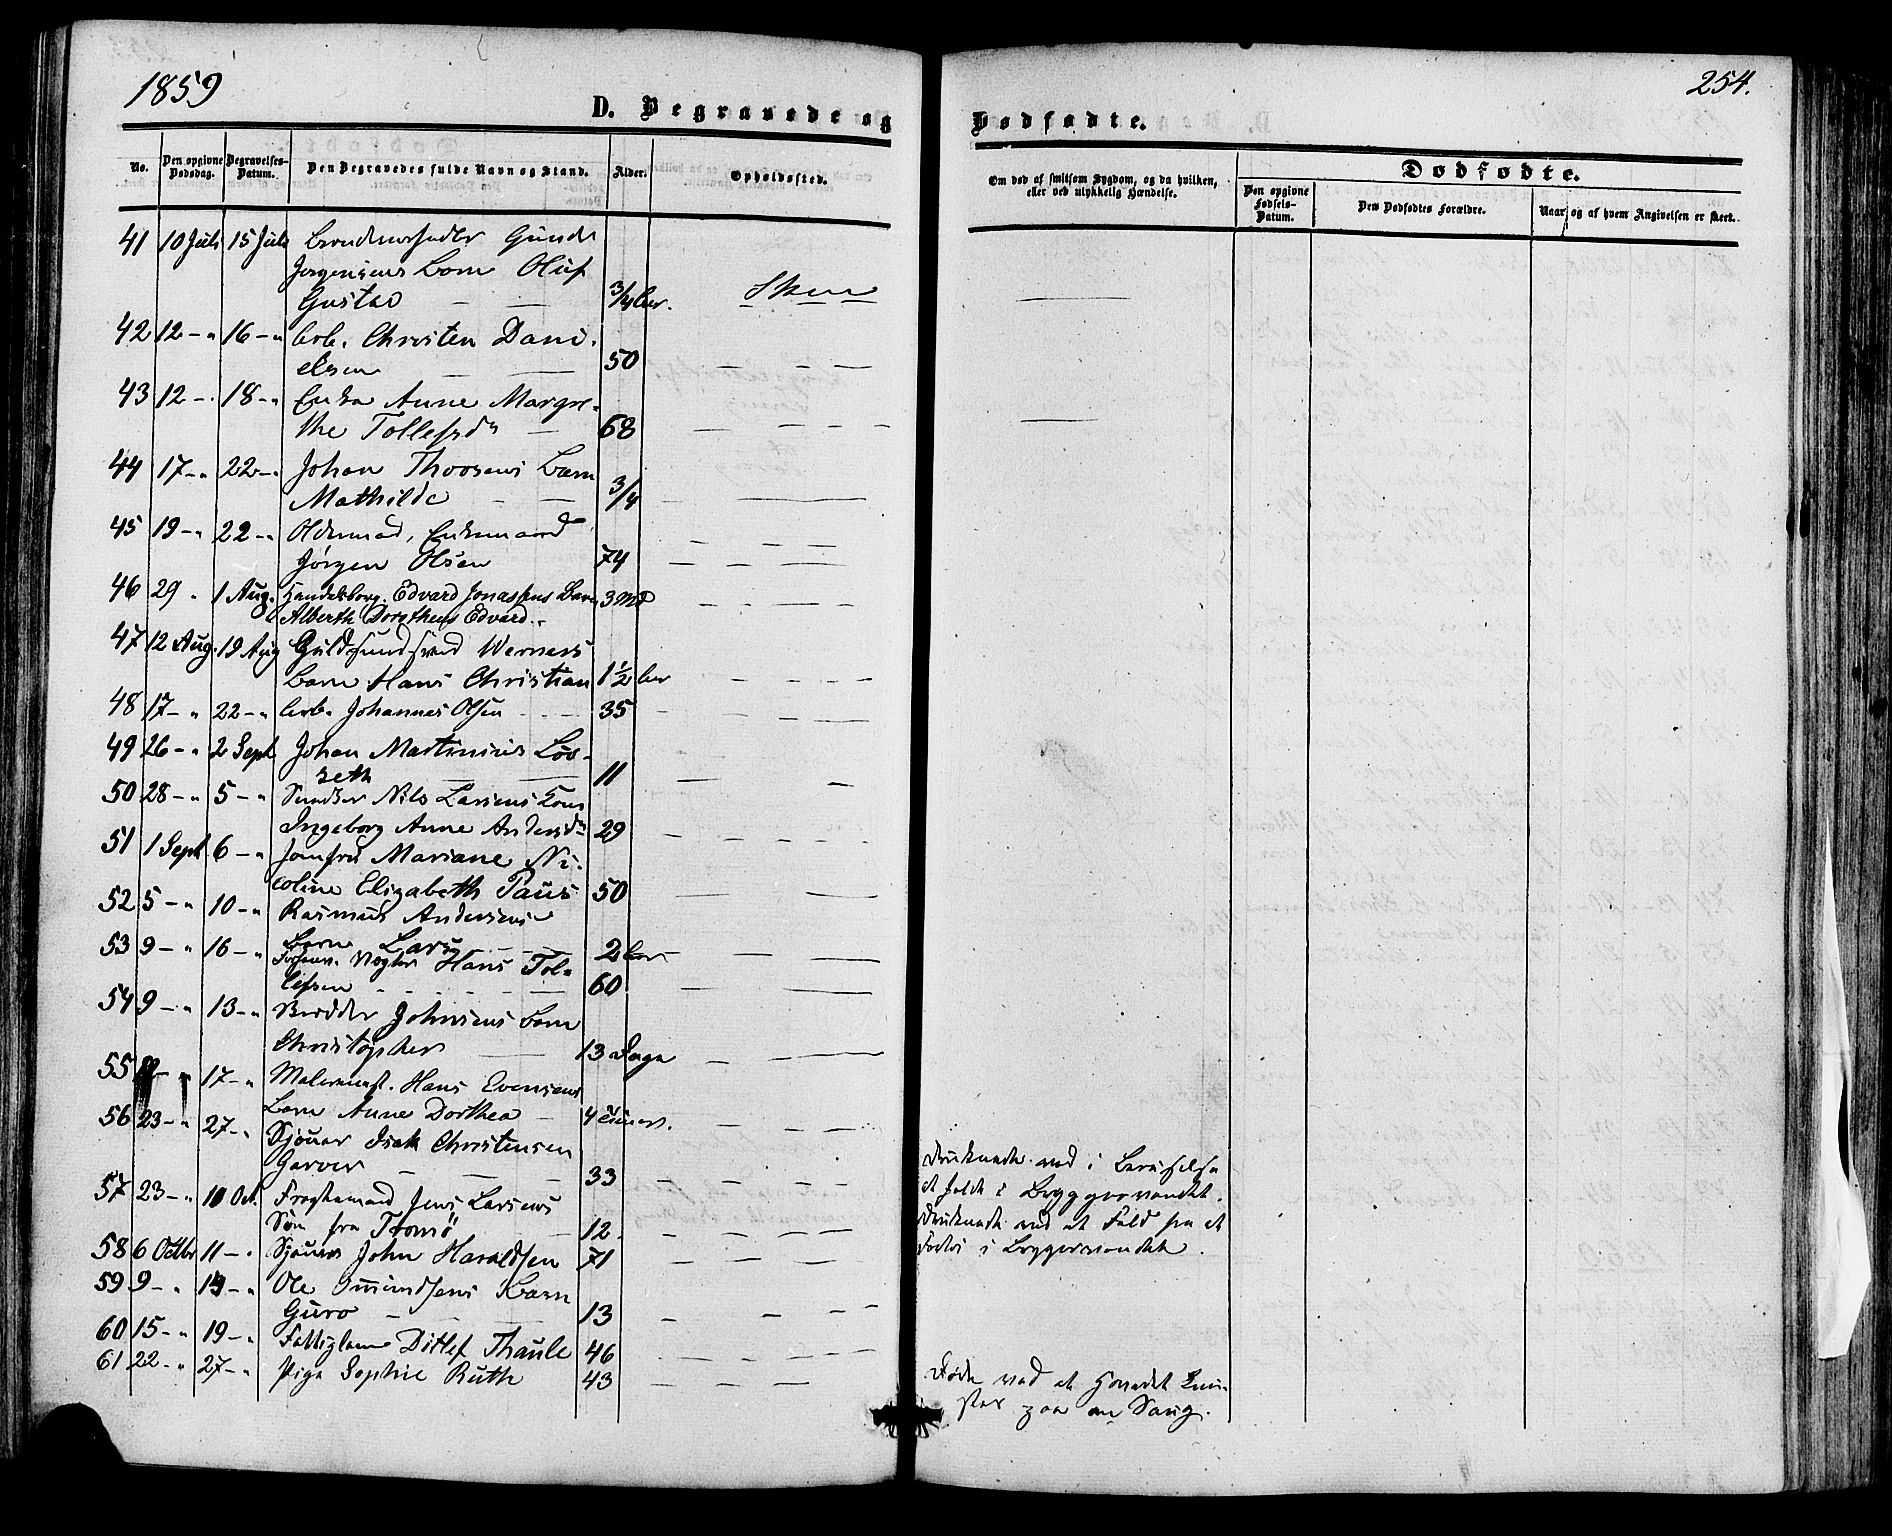 1859
254.
D. Begravede og Dødfødte.
No.
Den opgivne Dødsdag.
Begravelses-Datum.
Den Begravedes fulde Navn og Stand.
Alder.
Opholdssted.
Om død af smitsom Sygdom, og da hvilken, eller ved ulykkelig Hændelse.
Dødfødte.
Den opgivne Fødsels-Datum.
Den Dødfødtes Forældre.
Naar, og af hvem Angivelsen er skeet.
41 10 Juli 15 Juli Gunder
Jørgensens Barn Oluf
Gustav — — 3/4 Skien
42 12 – „ 16 – „ Arb. Christen Dani-
elsen — — 50 — — —
43 12 – „ 18 – „ Enke Anne Margre-
the Tollefsd. — 68 — — — —
44 17 – „ 22 – „ Johan Thoresens Barn
Mathilde — — 3/4 — —
45 19 – „ 22 – „ Enkemand
Jørgen Olsen 74 — — — —
46 29 „ 1 Aug. Handelsborg. Edvard Jonassens Barn 3 Md
Alberth Edvard
47 12 Aug. 19 Aug Guldsmedsvend Werners
Barn Hans Christian 1 1/2 — — —
48 17 – „ 22 – „ Arb. Johannes Olsen 35 — — —
49 26 – „ 2 Sept Johan Martinius Løv-
seth — — 11 — —
50 28 – „ 5 – „ Snedker Nils Larsens Kone
Ingeborg Anne Andersd. 29 — — — —
51 1 Sept 6 – „ Jomfru Mariane Ni-
coline Elizabeth Paus 50 — — —
52 5 – „ 10 – „ Rasmus Andersens
Barn Lars — — 2 — — —
53 9 – „ 16 – „ Hans Tol-
lefsen — — 60 — — —
54 9 – „ 13 – „ Johnsens Barn
Christopher — 13 Dage — — —
55 17 – „ Malermest. Hans Evensens
Barn Anne Dorthea — 4 — — —
56 23 – „ 27 – „ Sjouer Isak Christensen
Garver — — 33 — — —
Druknede ved i Beruselse
at falde i Bryggevandet.
57 23 – „ 10 Oct. Jens Larsens
Søn fra Tromsö — 12. — — —
Druknede ved at Fald fra et
i Bryggevandet.
58 6 Octbr 11 – „ Sjouer John Haraldsen 71 — — —
59 9 – „ 14 – „ Ole Barn
Guro — — 13 — — —
60 15 – „ 19 – „ Fattiglem Ditlef Thaule 46 — — —
61 22 – „ 27 – „ Pige Sophie Ruth 43 — — —
Døde ved at Hovedet
paa en Sang.